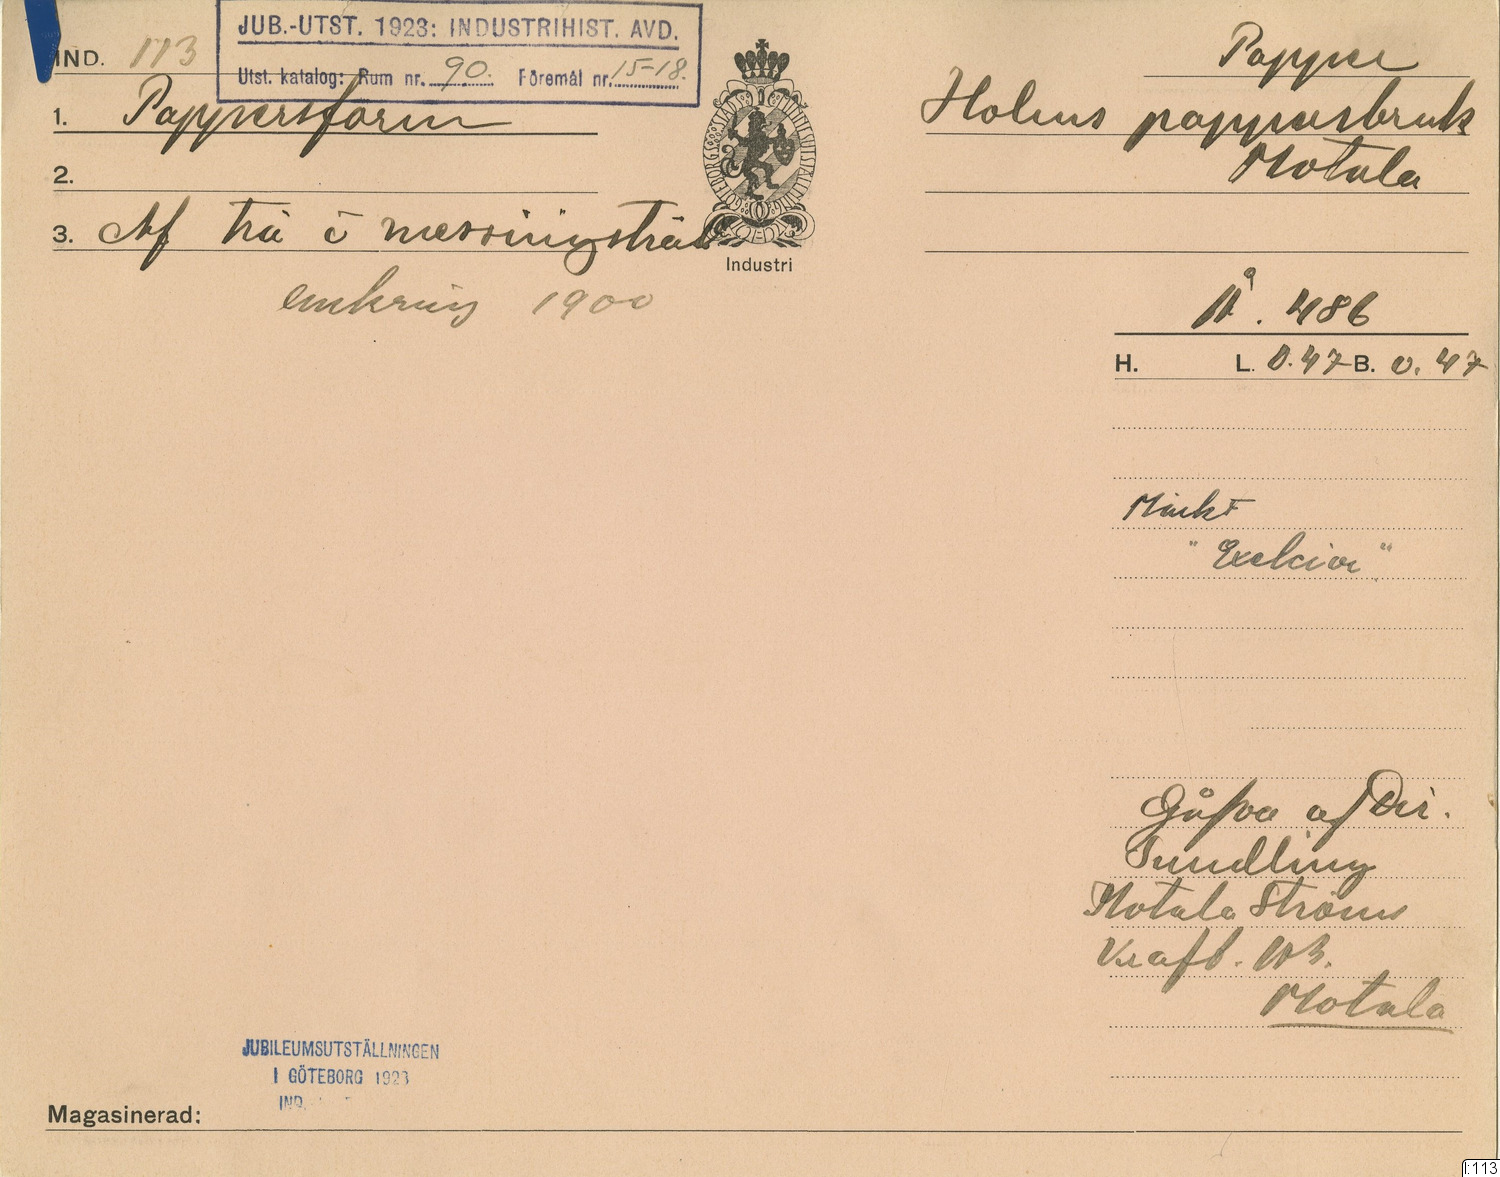 JUB.-UTST. 1923: INDUSTRIHIST. AVD.
Utst. katalog: Rum nr. 90. Föremål nr. 15-18.
IND. 113
1. Pappersform
2.
3. Af trä o messingstråd
omkring 1900
GÖTEBORGS STADS MINNESUTSTÄLLNING
Industri
Papper
Holms pappersbruk
Motala
Å. 486
H. L. 0.47 B. 0.47
Märkt
"Exelcior"
Gåfva af Dir.
Sundling
Motala Ströms
Kraft. AB.
Motala
JUBILEUMSUTSTÄLLNINGEN
I GÖTEBORG 1923
IND.
Magasinerad:
I:113